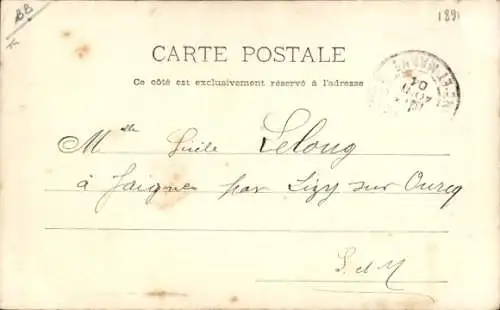 BB
1891
CARTE POSTALE
Ce côté est exclusivement réservé à l'adresse
Mlle Lucile Lelong
à Jaignes par Lizy sur Ourcq
S. et M